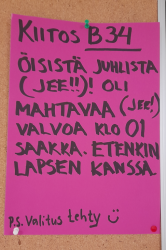 KIITOS B34
ÖISISTÄ JUHLISTA
(JEE!!)! OLI
MAHTAVAA (JEE!)
VALVOA KLO 01
SAAKKA. ETENKIN
LAPSEN KANSSA.
P.S. Valitus tehty ☺